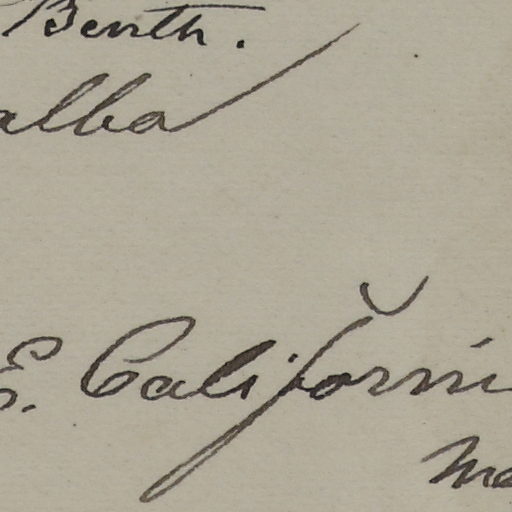 Benth.
alba
E. Californi
Ma